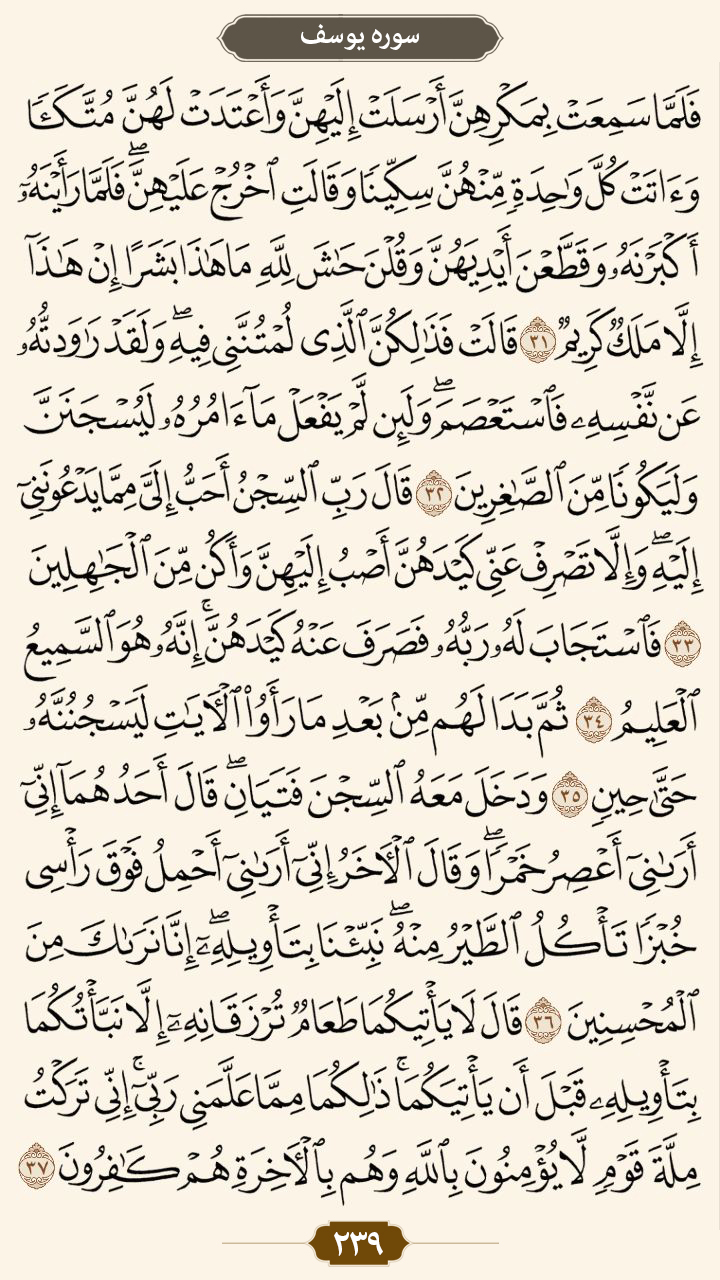 سوره یوسف
فَلَمَّا سَمِعَتْ بِمَكْرِهِنَّ أَرْسَلَتْ إِلَيْهِنَّ وَأَعْتَدَتْ لَهُنَّ مُتَّكَـًٔا
وَءَاتَتْ كُلَّ وَٰحِدَةٍ مِّنْهُنَّ سِكِّينًا وَقَالَتِ ٱخْرُجْ عَلَيْهِنَّ ۖ فَلَمَّا رَأَيْنَهُۥٓ
أَكْبَرْنَهُۥ وَقَطَّعْنَ أَيْدِيَهُنَّ وَقُلْنَ حَٰشَ لِلَّهِ مَا هَٰذَا بَشَرًا إِنْ هَٰذَآ
إِلَّا مَلَكٌ كَرِيمٌ ٣١ قَالَتْ فَذَٰلِكُنَّ ٱلَّذِى لُمْتُنَّنِى فِيهِ ۖ وَلَقَدْ رَٰوَدتُّهُۥ
عَن نَّفْسِهِۦ فَٱسْتَعْصَمَ ۖ وَلَئِن لَّمْ يَفْعَلْ مَآ ءَامُرُهُۥ لَيُسْجَنَنَّ
وَلَيَكُونًا مِّنَ ٱلصَّٰغِرِينَ ٣٢ قَالَ رَبِّ ٱلسِّجْنُ أَحَبُّ إِلَىَّ مِمَّا يَدْعُونَنِىٓ
إِلَيْهِ ۖ وَإِلَّا تَصْرِفْ عَنِّى كَيْدَهُنَّ أَصْبُ إِلَيْهِنَّ وَأَكُن مِّنَ ٱلْجَٰهِلِينَ
٣٣ فَٱسْتَجَابَ لَهُۥ رَبُّهُۥ فَصَرَفَ عَنْهُ كَيْدَهُنَّ ۚ إِنَّهُۥ هُوَ ٱلسَّمِيعُ
ٱلْعَلِيمُ ٣٤ ثُمَّ بَدَا لَهُم مِّنۢ بَعْدِ مَا رَأَوُا۟ ٱلْـَٔايَٰتِ لَيَسْجُنُنَّهُۥ
حَتَّىٰ حِينٍ ٣٥ وَدَخَلَ مَعَهُ ٱلسِّجْنَ فَتَيَانِ ۖ قَالَ أَحَدُهُمَآ إِنِّىٓ
أَرَىٰنِىٓ أَعْصِرُ خَمْرًا ۖ وَقَالَ ٱلْـَٔاخَرُ إِنِّىٓ أَرَىٰنِىٓ أَحْمِلُ فَوْقَ رَأْسِى
خُبْزًا تَأْكُلُ ٱلطَّيْرُ مِنْهُ ۖ نَبِّئْنَا بِتَأْوِيلِهِۦٓ ۖ إِنَّا نَرَىٰكَ مِنَ
ٱلْمُحْسِنِينَ ٣٦ قَالَ لَا يَأْتِيكُمَا طَعَامٌ تُرْزَقَانِهِۦٓ إِلَّا نَبَّأْتُكُمَا
بِتَأْوِيلِهِۦ قَبْلَ أَن يَأْتِيَكُمَا ۚ ذَٰلِكُمَا مِمَّا عَلَّمَنِى رَبِّىٓ ۚ إِنِّى تَرَكْتُ
مِلَّةَ قَوْمٍ لَّا يُؤْمِنُونَ بِٱللَّهِ وَهُم بِٱلْـَٔاخِرَةِ هُمْ كَٰفِرُونَ ٣٧
٢٣٩